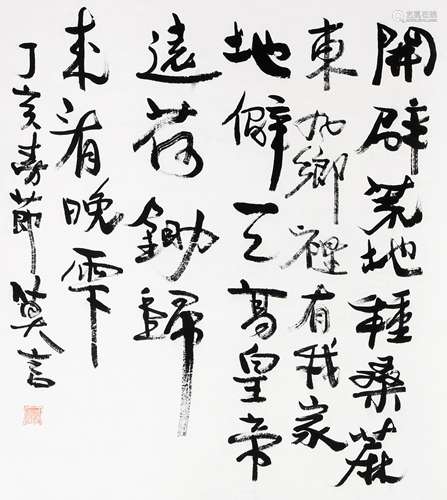 開辟荒地種桑麻
東北鄉裡有我家
地僻天高皇帝
遠荷鋤歸
來看晚霞
丁亥春節莫言